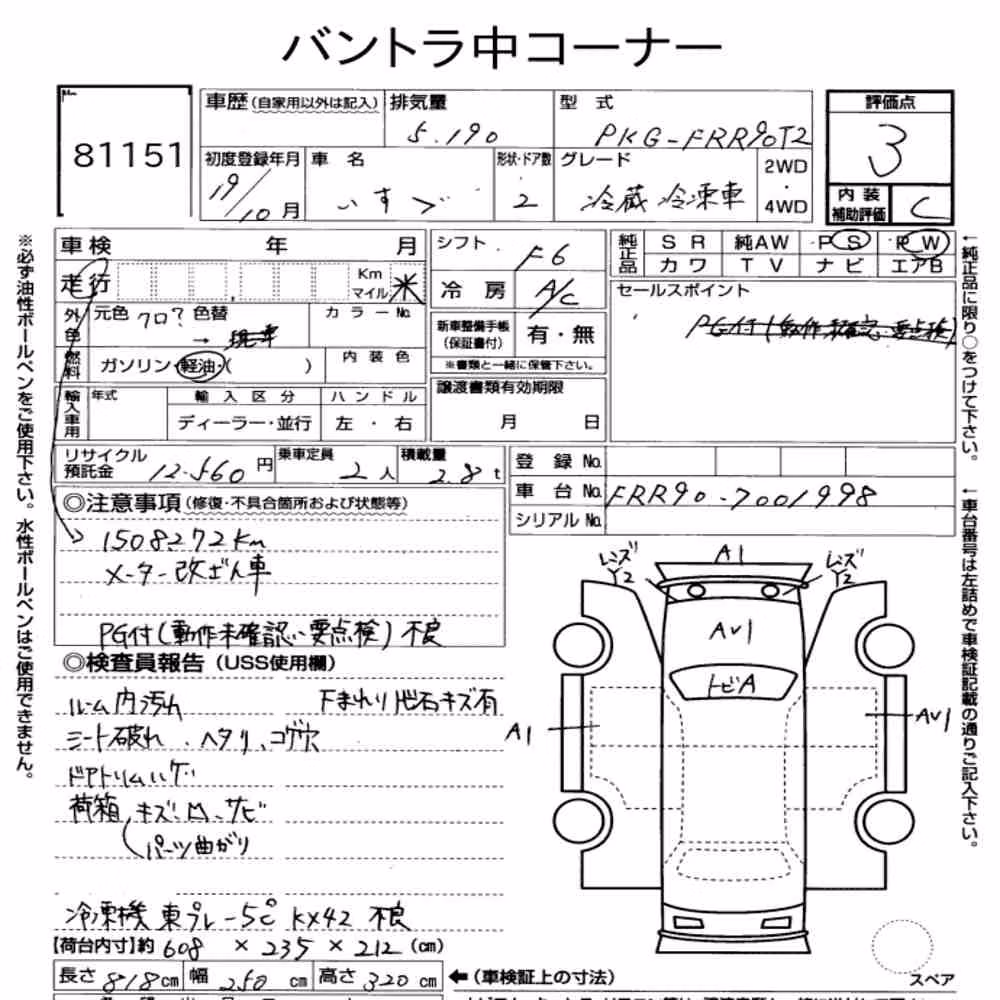 バントラ中コーナー
81151
車歴(自家用以外は記入) 排気量 5.190 型式 PKG-FRR90T2 評価点 3
初度登録年月 19/10月 車名 いすゞ 形状・ドア数 2 グレード 冷蔵冷凍車 2WD・4WD 内装補助評価 C
車検 年 月 シフト F6 純正品 SR 純AW PS PW
カワ TV ナビ エアB
走行 Km マイル 米 冷房 A/C セールスポイント
外色 元色 クロ? 色替 → 現車 カラーNo. 新車整備手帳(保証書付) 有・無 PG付(動作未確認、要点検)
※書類と一緒に保管下さい。
燃料 ガソリン・軽油・( ) 内装色 譲渡書類有効期限
月 日
輸入車用 年式 輸入区分 ハンドル
ディーラー・並行 左・右
リサイクル預託金 12.560円 乗車定員 2人 積載量 2.8t 登録No.
車台No. FRR90-7001998
シリアルNo.
◎注意事項(修復・不具合箇所および状態等)
1508272km
メーター改ざん車
PG付(動作未確認、要点検)不良
◎検査員報告(USS使用欄)
ルーム内汚れ 下まわり飛石キズ有
シート破れ、ヘタリ、コゲ穴
ドアトリムハゲ
荷箱、キズ、凹、サビ
パーツ曲がり
冷凍機 東プレ -5℃ KX42 不良
【荷台内寸】約 608 × 235 × 212 (cm)
長さ 818cm 幅 250cm 高さ 320cm ←(車検証上の寸法)
レンズY2 A1 レンズY2
AV1
トビA
A1 AV1
スペア
※必ず油性ボールペンをご使用下さい。水性ボールペンはご使用できません。
←純正品に限り○をつけて下さい。
←車台番号は左詰めで車検証記載の通りご記入下さい。